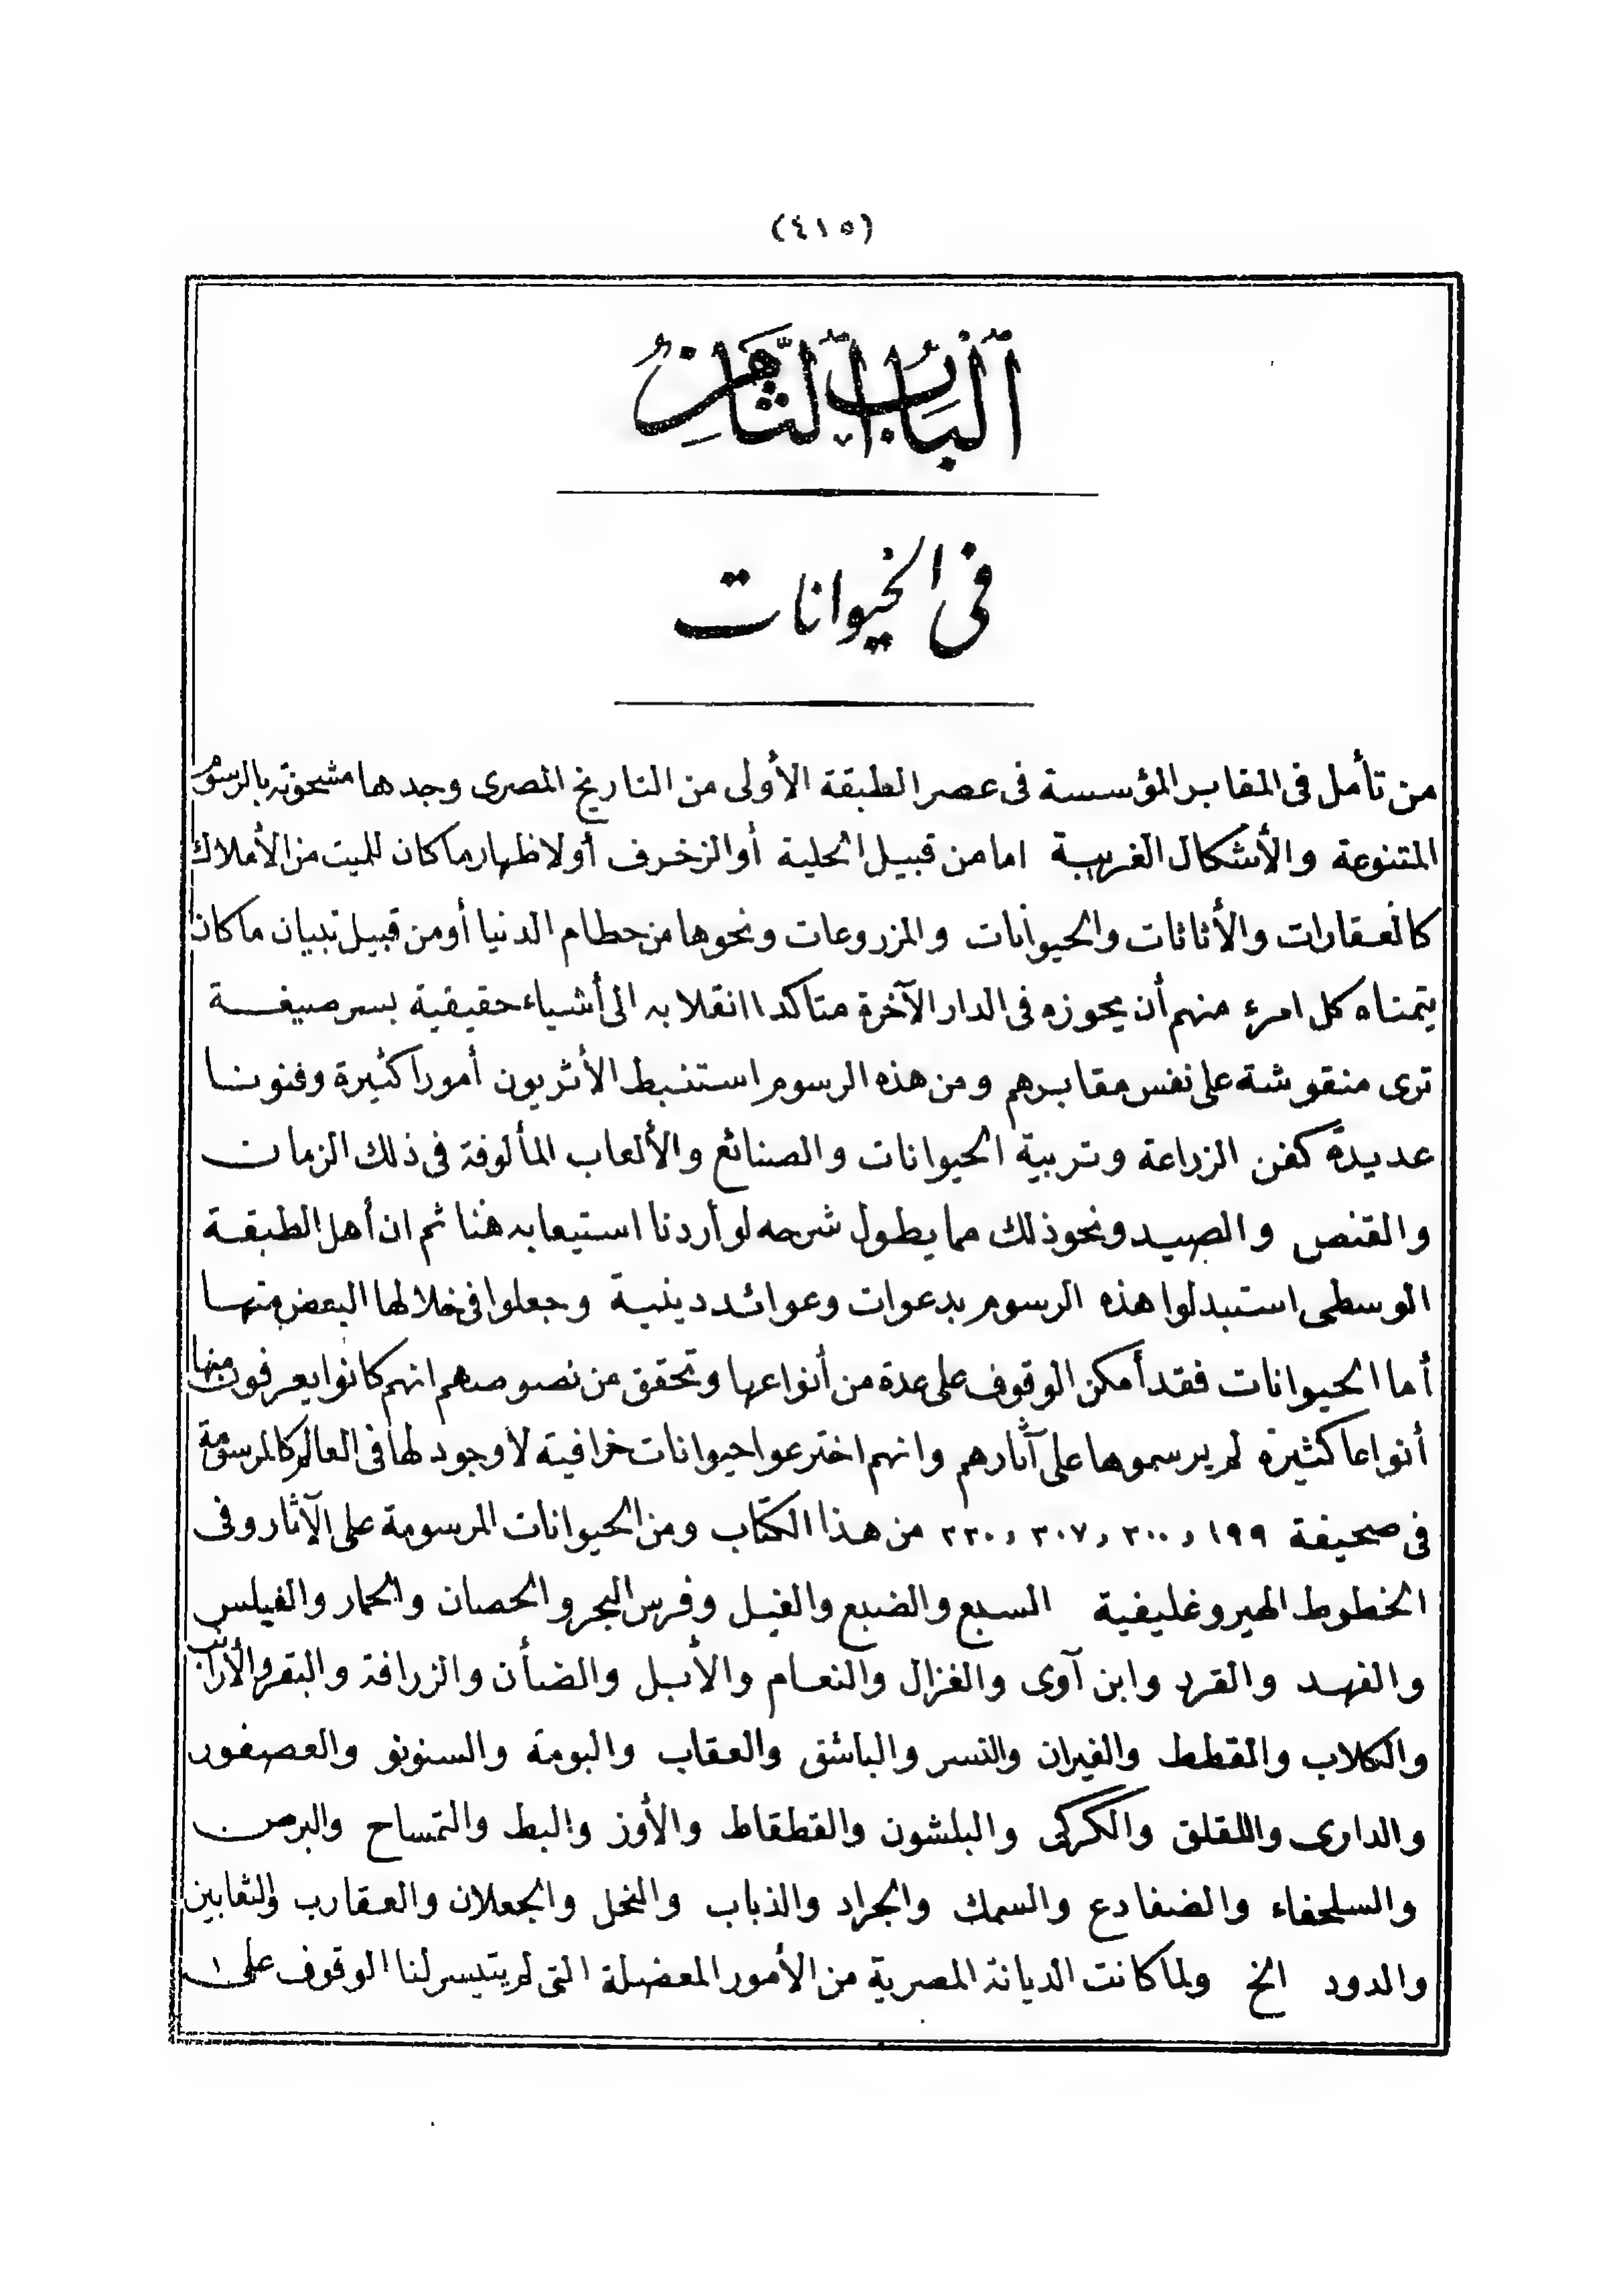 (٤١٥)
الباب الثامن
في الحيوانات
من تأمل فى المقابر المؤسسة فى عصر الطبقة الأولى من التاريخ المصرى وجدها مشحونة بالرسوم
المتنوعة والأشكال الغريبة امامن قبيل الحلية أو الزخرف أو لاظهار ما كان للميت من الأملاك
كالعقارات والأثاثات والحيوانات والمزروعات ونحوها من حطام الدنيا أو من قبيل تبيان ما كان
يتمناه كل امرء منهم أن يحوزه فى الدار الآخرة متاكدا انقلابه الى أشياء حقيقية بسر صيغة
ترى منقوشة على نفس مقابرهم ومن هذه الرسوم استنبط الأثريون أمورا كثيرة وفنونا
عديدة كفن الزراعة وتربية الحيوانات والصنائع والألعاب المألوفة فى ذلك الزمان
والقنص والصيد ونحو ذلك مما يطول شرحه لو أردنا استيعابه هنا ثم ان أهل الطبقة
الوسطى استبدلوا هذه الرسوم بدعوات وعوائد دينية وجعلوا فى خلالها البعض منها
أما الحيوانات فقد أمكن الوقوف على عدة من أنواعها وتحقق من نصوصهم انهم كانوا يعرفون منها
أنواعا كثيرة لم يرسموها على آثارهم وانهم اخترعوا حيوانات خرافية لا وجود لها فى العالم كالمرسومة
فى صحيفة ١٩٩ و ٣٠٠ و ٣٠٧ و ٣٣٠ من هذا الكتاب ومن الحيوانات المرسومة على الآثار وفى
الخطوط الهيروغليفية السبع والضبع والفيل وفرس البحر والحصان والحمار والفيلس
والفهد والقرد وابن آوى والغزال والنعام والأبل والضأن والزرافة والبقر والأرانب
والكلاب والقطط والفيران والنسر والباشق والعقاب والبومة والسنونو والعصفور
والدارى واللقلق والكركى والبلشون والقطقاط والأوز والبط والتمساح والبرص
والسلحفاء والضفادع والسمك والجراد والذباب والنحل والجعلان والعقارب والثعابين
والدود الخ ولما كانت الديانة المصرية من الأمور المعضلة التى لم يتيسر لنا الوقوف على